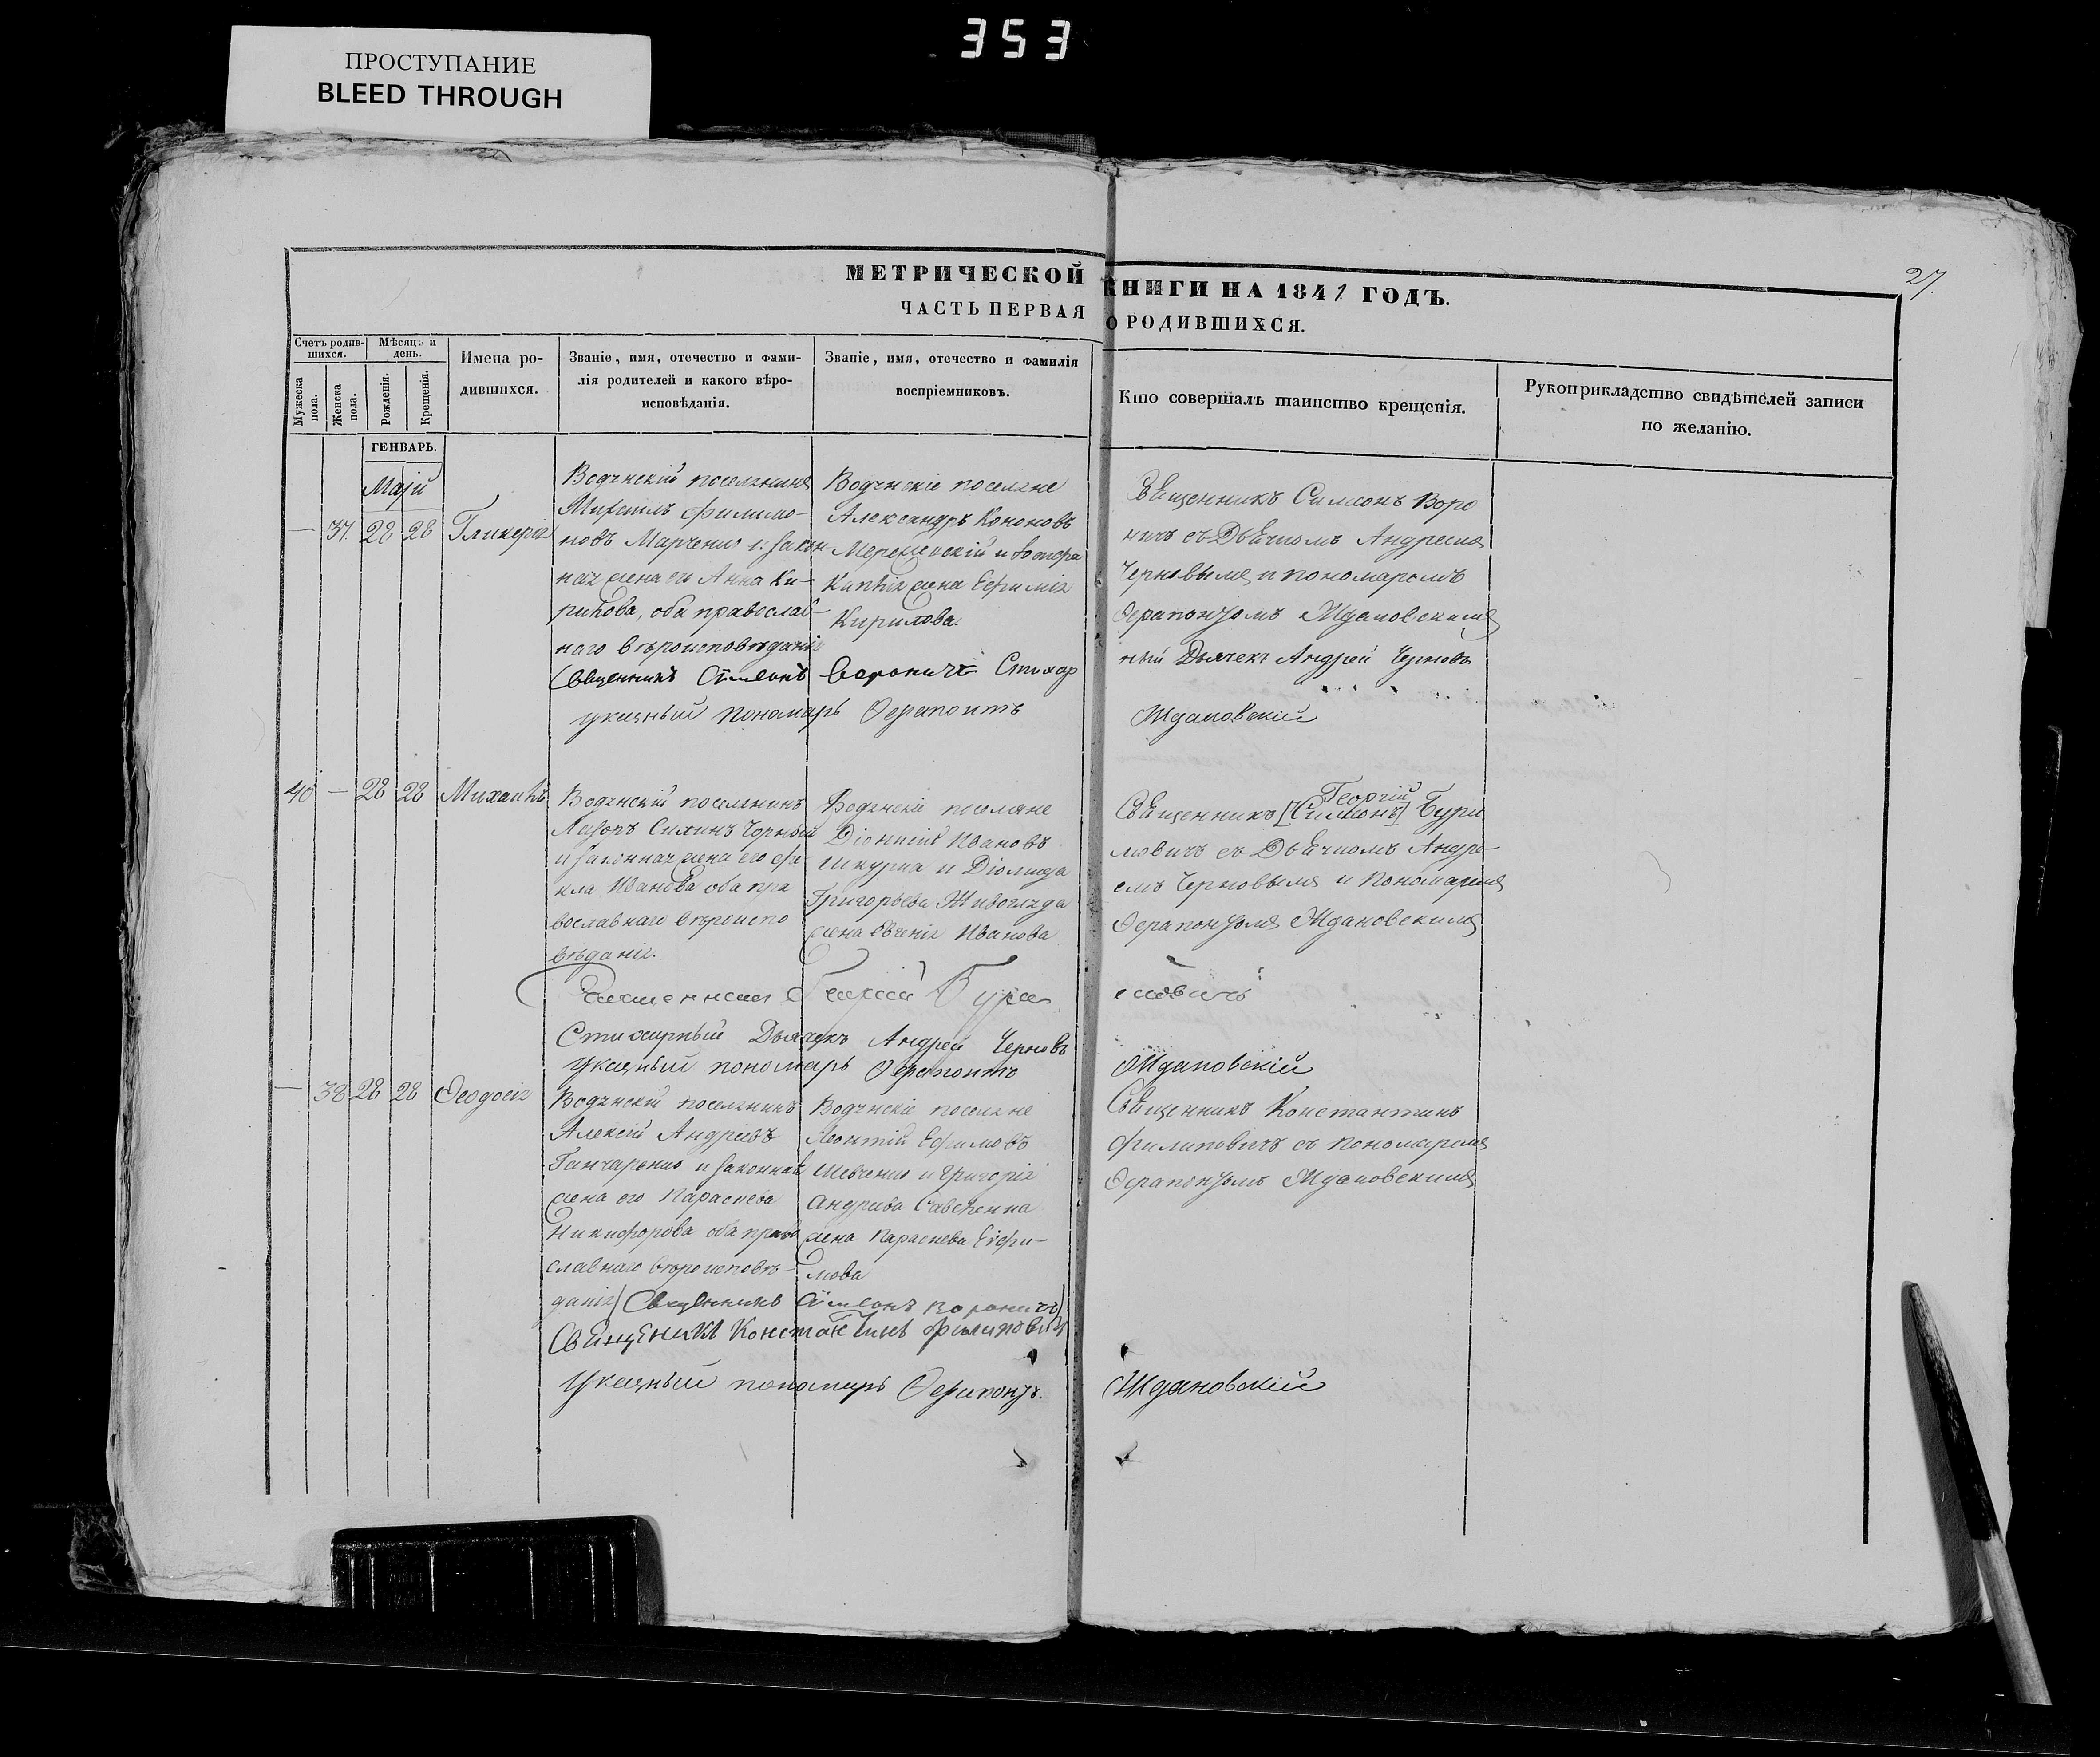 353
ПРОСТУПАНИЕ
BLEED THROUGH
27.
МЕТРИЧЕСКОЙ КНИГИ НА 1841 ГОДЪ.
ЧАСТЬ ПЕРВАЯ О РОДИВШИХСЯ.
Счетъ родив-
шихся.
Мѣсяцъ и
день.
Мужеска пола.
Женска пола.
Рожденія.
Крещенія.
Имена ро-
дившихся.
Званіе, имя, отечество и фами-
лія родителей и какого вѣро-
исповѣданія.
Званіе, имя, отечество и фамилія
воспріемниковъ.
Кто совершалъ таинство крещенія.
Рукоприкладство свидѣтелей записи
по желанію.
ГЕНВАРЬ.
Маій
— 37. 28 28 Гликерія
Водянскій поселянинъ
Михаилъ Филимо-
новъ Марченко и закон
ная жена его Анна Ки-
рикова, оба православ-
наго вѣроисповѣданія
Водянскіе поселяне
Александръ Кононовъ
жена Ефимія
Кирилова.
Священникъ Симеонъ Воро
ничъ съ Дьячкомъ Андреемъ
Черновымъ и пономаромъ
Ферапонтомъ Ждановскимъ
Священникъ Симеонъ Вороничъ Стихар
ный Дьячекъ Андрей Черновъ
указный пономарь Ферапонтъ Ждановскій
40 — 28 28 Михаилъ
Водянскій поселянинъ
Чорный
и законная жена его Фе-
кла Иванова оба пра
вославнаго вѣроиспо
вѣданія.
Водянскіе поселяне
Діонисій Ивановъ
Шкурка и Діомида
Григорьева
жена Евгенія Иванова
Георгій
Священникъ [Симеонъ] Бури
мовичъ съ Дьячкомъ Андре-
емъ Черновымъ и Пономаремъ
Ферапонтомъ Ждановскимъ
Священникъ Георгій Бури мовичъ
Стихарный Дьячекъ Андрей Черновъ
Указный пономарь Ферапонтъ Ждановскій
— 38 28 28 Феодосія
Водянскій поселянинъ
Алексій Андреевъ
Ганчаренко и законная
жена его Параскева
Никифорова оба право
славнаго вѣроисповѣ-
данія
Водянскіе поселяне
Леонтій Ефимовъ
Шевченко и Григорія
Андреева
жена Параскева Ефи-
мова
Священникъ Константинъ
Филиповичъ съ пономаремъ
Ферапонтомъ Ждановскимъ
(Священникъ Симеонъ Вороничъ)
Священикъ Константинъ Филиповичъ
Указный пономарь Ферапонтъ. Ждановскій